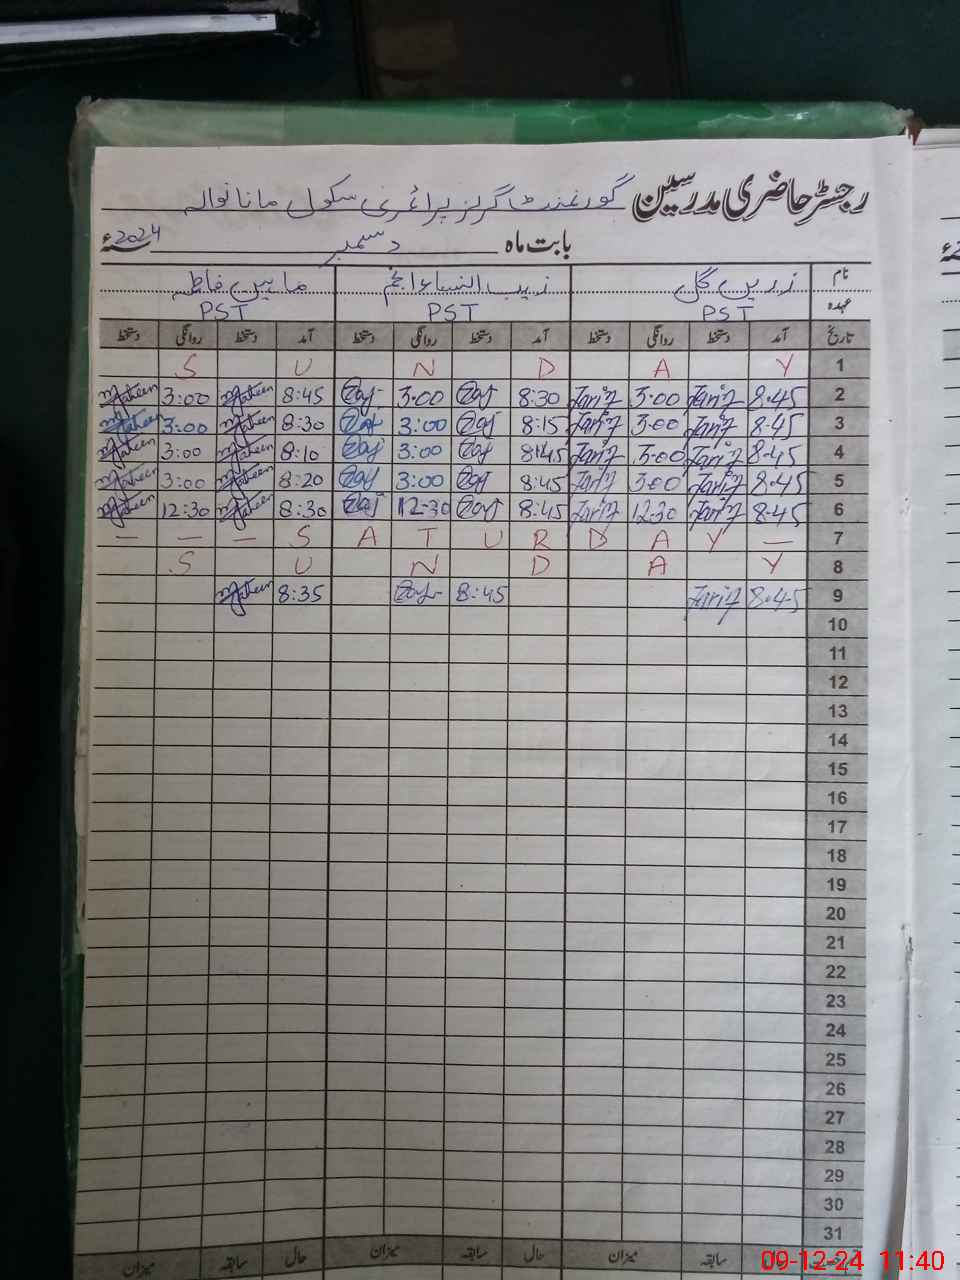 رجسٹر حاضری مدرسین گورنمنٹ گرلز پرائمری سکول مانانوالہ
بابت ماہ دسمبر 2024ء
نام زریں گل زیب النساء انجم ماہین فاطمہ
عہدہ PST PST PST
تاریخ آمد دستخط روانگی دستخط آمد دستخط روانگی دستخط آمد دستخط روانگی دستخط
1 S U N D A Y
2 8.45 Zariz 3.00 Zariz 8:30 3.00 8:45 Maheen 3:00 Maheen
3 8.45 Zariz 3.00 Zariz 8:15 3:00 8:30 Maheen 3:00 Maheen
4 8.45 Zariz 3.00 Zariz 8:45 3:00 8:10 Maheen 3:00 Maheen
5 8.45 Zariz 3.00 Zariz 8:45 3:00 8:20 Maheen 3:00 Maheen
6 8.45 Zariz 12.30 Zariz 8:45 12:30 8:30 Maheen 12:30 Maheen
7 — — — S A T U R D A Y —
8 S U N D A Y
9 8.45 Zariz 8:45 8:35 Maheen
10
11
12
13
14
15
16
17
18
19
20
21
22
23
24
25
26
27
28
29
30
31
سابقہ میزان حال سابقہ میزان حال سابقہ میزان
09-12-24 11:40